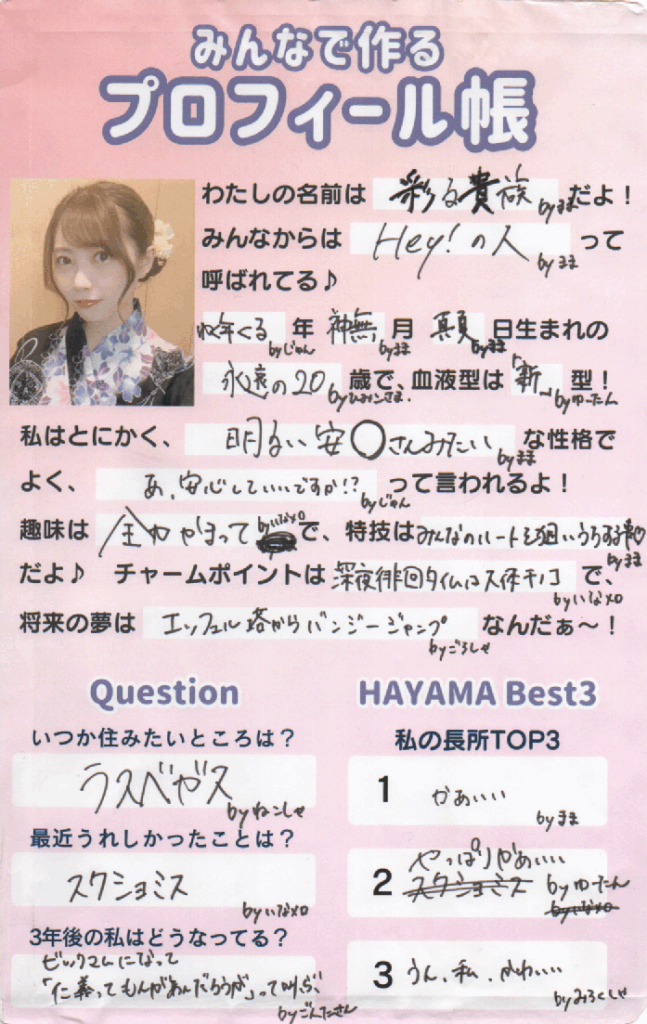 みんなで作る
プロフィール帳
わたしの名前は 彩る貴族 by まま だよ！
みんなからは Hey!の人 by まま って
呼ばれてる♪
年くる 年 神無 月 真夏 日生まれの
by じゅん by まま by まま
永遠の20 歳で、血液型は 「新」 型！
by ゆーたん
私はとにかく、 明るい安〇さんみたい by まま な性格で
よく、 あ、安心していいですか!? by じゅん って言われるよ！
趣味は 全力やまって by いなメロ で、特技は みんなのハートを狙いうちする事♡
by まま
だよ♪ チャームポイントは 深夜徘回タイムは天体キノコ で、
by いなメロ
将来の夢は エッフェル塔からバンジージャンプ なんだぁ～！
by ごろしせ
Question
いつか住みたいところは？
ラスベガス
by ねこしせ
最近うれしかったことは？
スクショミス
by いなメロ
3年後の私はどうなってる？
ビックマムになって
「仁義ってもんがあんだろうが」って叫ぶ
by ごんたさん
HAYAMA Best3
私の長所TOP3
1 かあいい
by まま
やっぱりかあいい
2 スクショミス by ゆーたん
by いなメロ
3 うん、私、かわいい
by みろくしせ